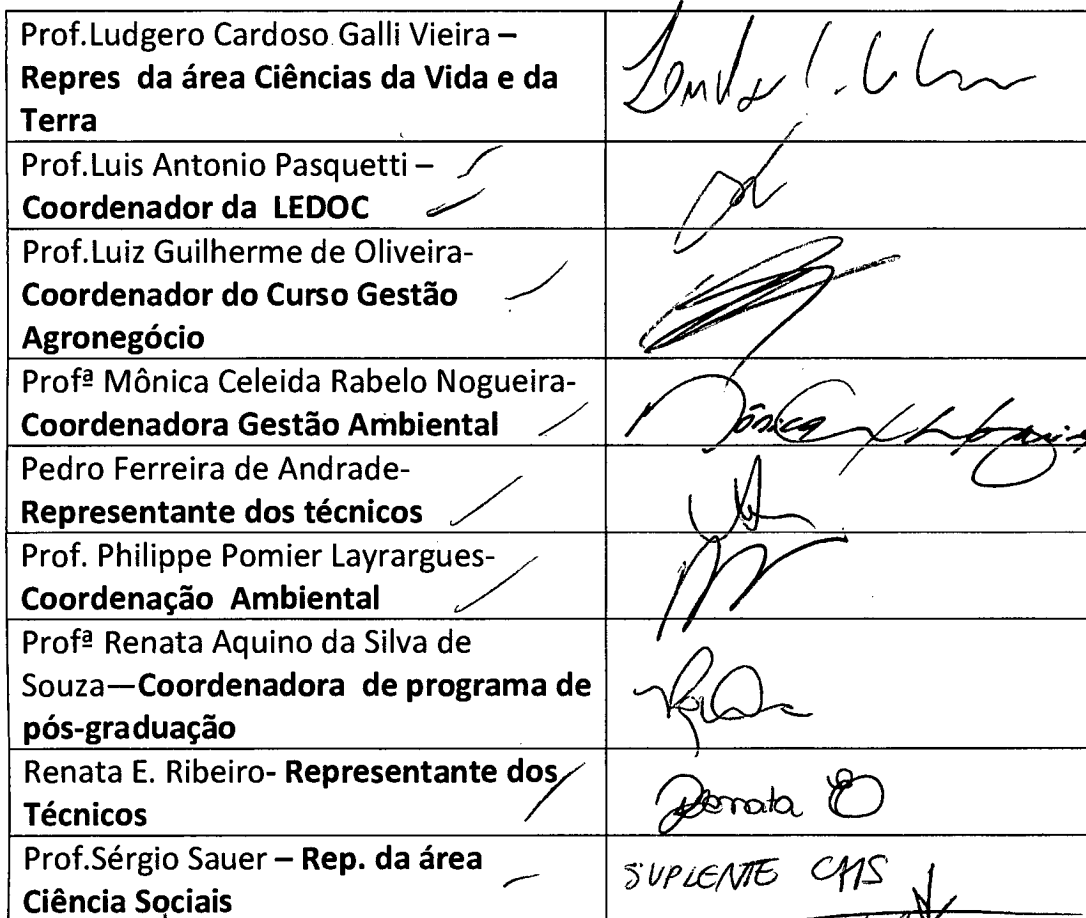 Prof.Ludgero Cardoso Galli Vieira –
Repres da área Ciências da Vida e da
Terra
Prof.Luis Antonio Pasquetti –
Coordenador da LEDOC
Prof.Luiz Guilherme de Oliveira-
Coordenador do Curso Gestão
Agronegócio
Profª Mônica Celeida Rabelo Nogueira-
Coordenadora Gestão Ambiental
Mônica
Pedro Ferreira de Andrade-
Representante dos técnicos
Prof. Philippe Pomier Layrargues-
Coordenação Ambiental
Profª Renata Aquino da Silva de
Souza—Coordenadora de programa de
pós-graduação
Renata E. Ribeiro- Representante dos
Técnicos
Renata
Prof.Sérgio Sauer – Rep. da área
Ciência Sociais
SUPLENTE